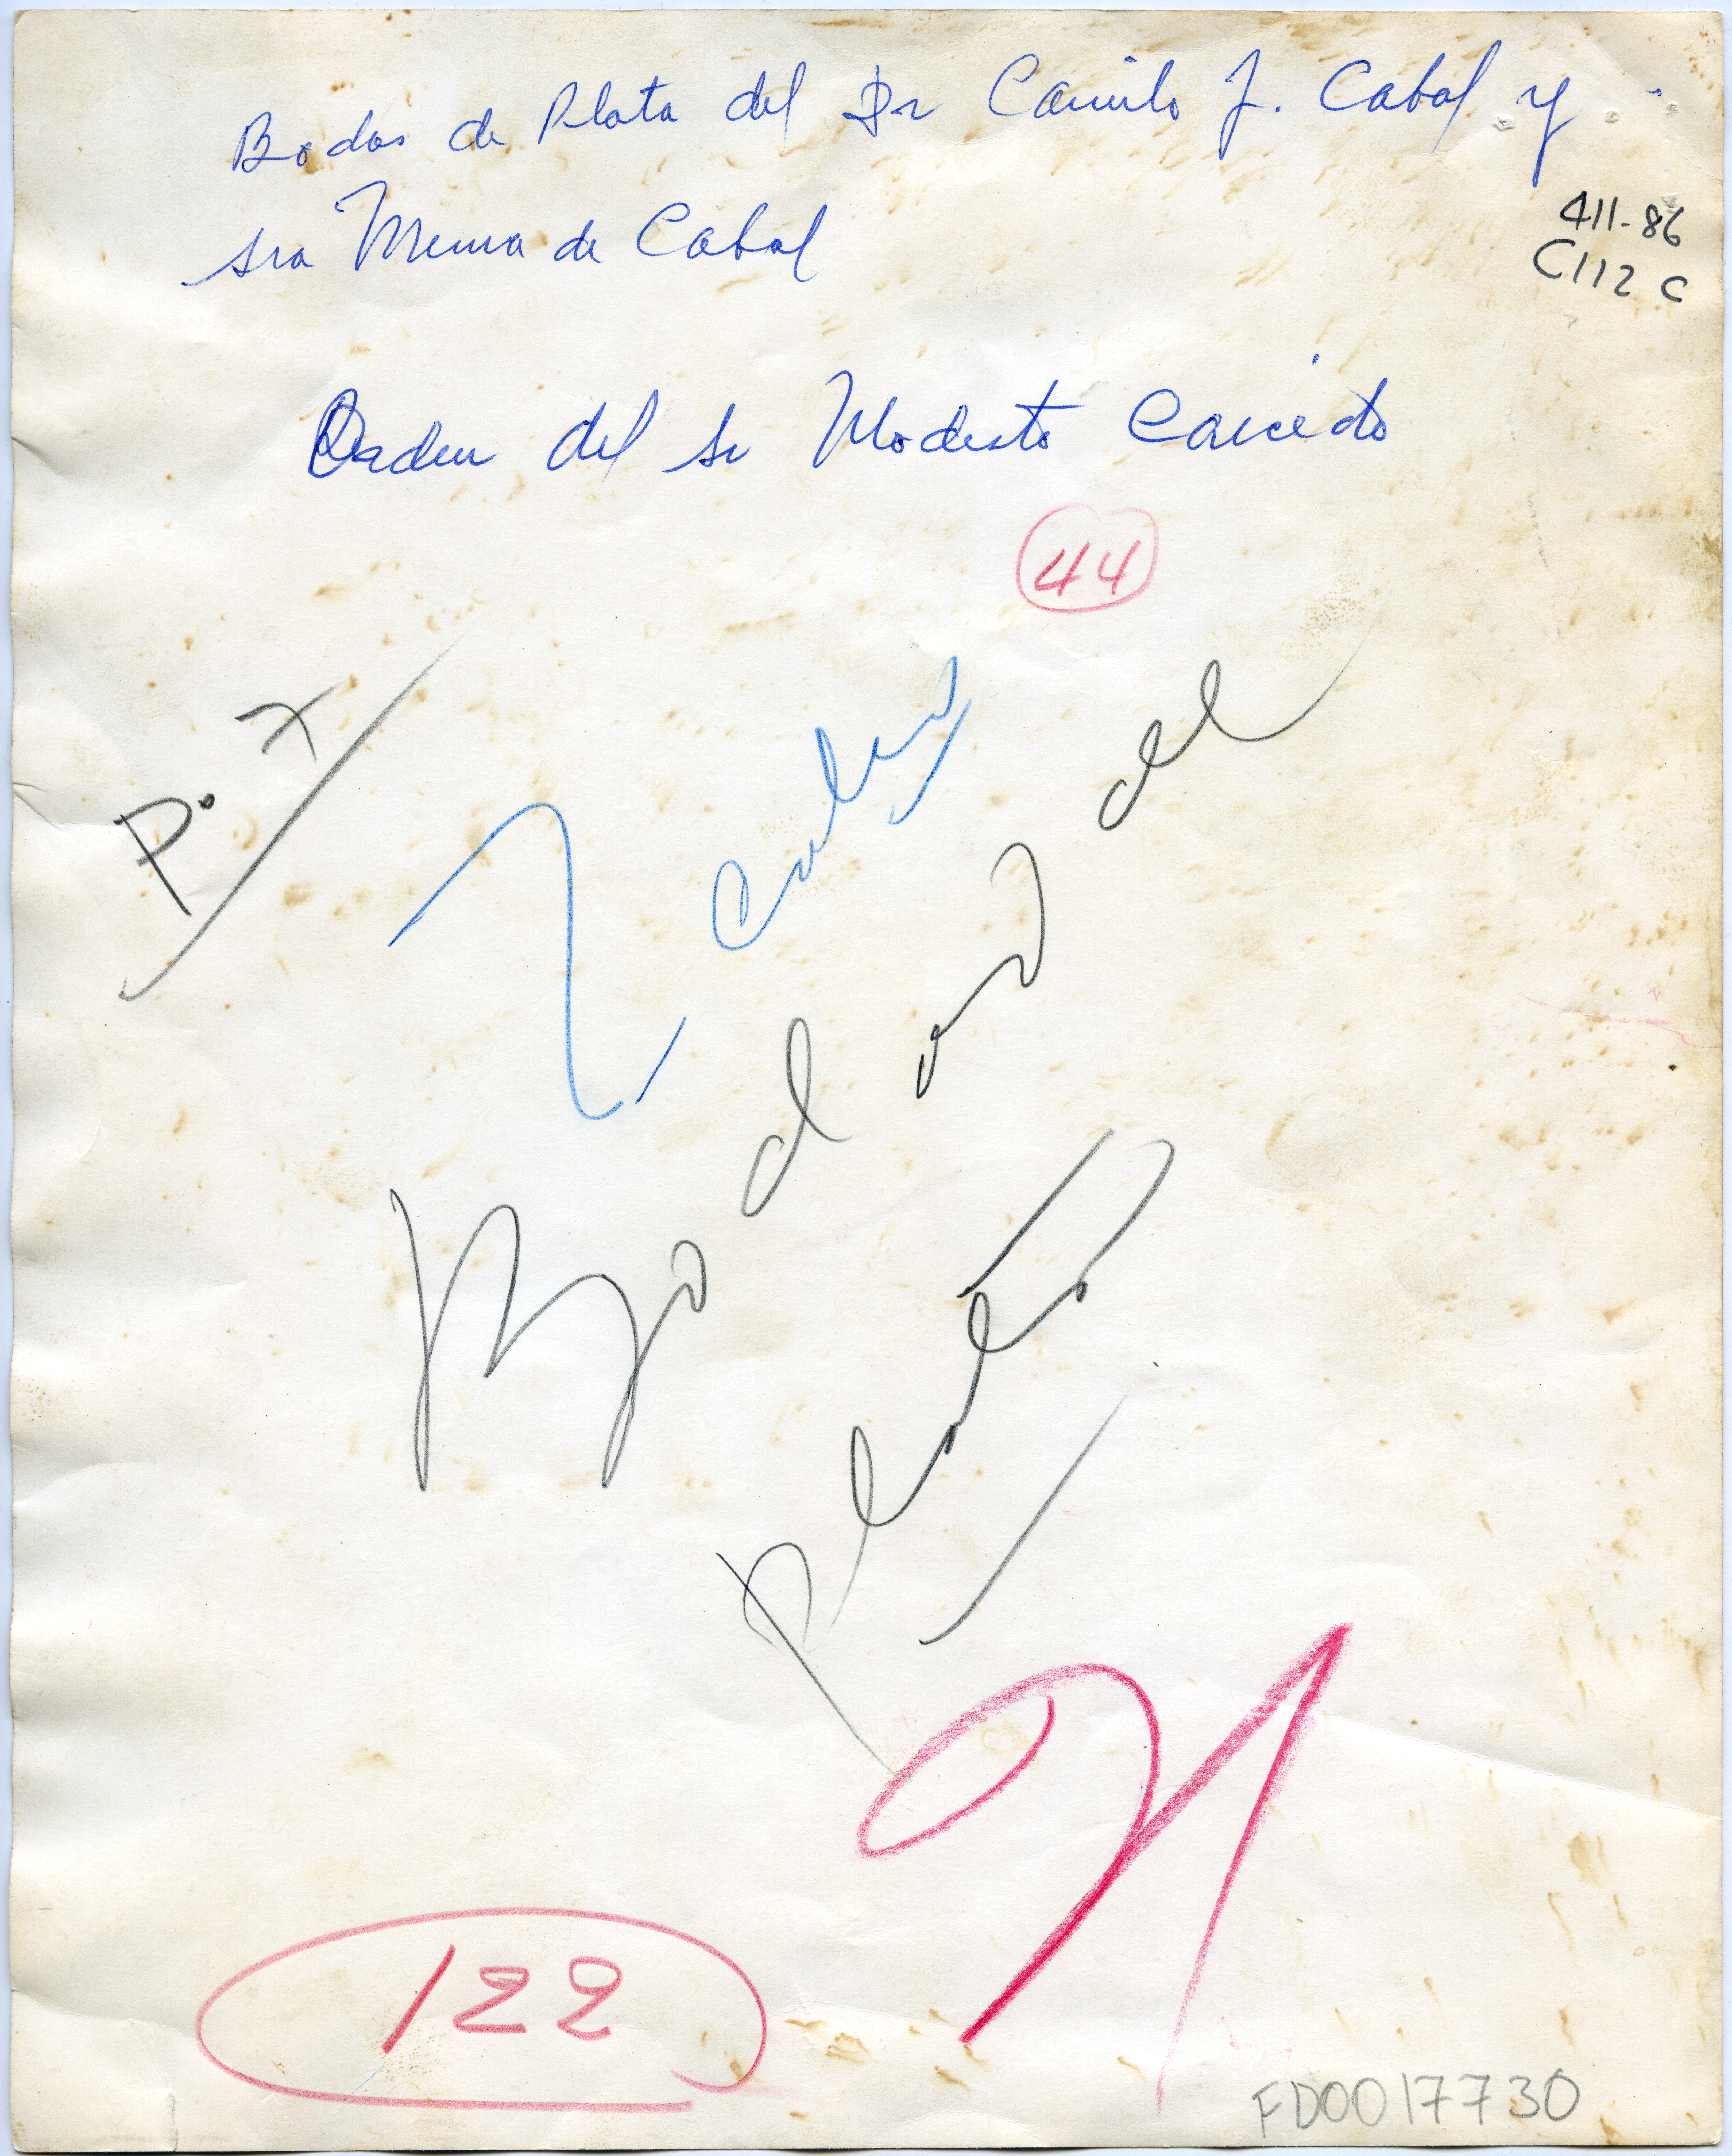 Bodas de Plata del Dr Camilo J. Cabal y
sra Mema de Cabal
411-86
C112 C
Orden del sr Modesto Caicedo
44
P. 7
Bodas de
Plata
122
FD0017730